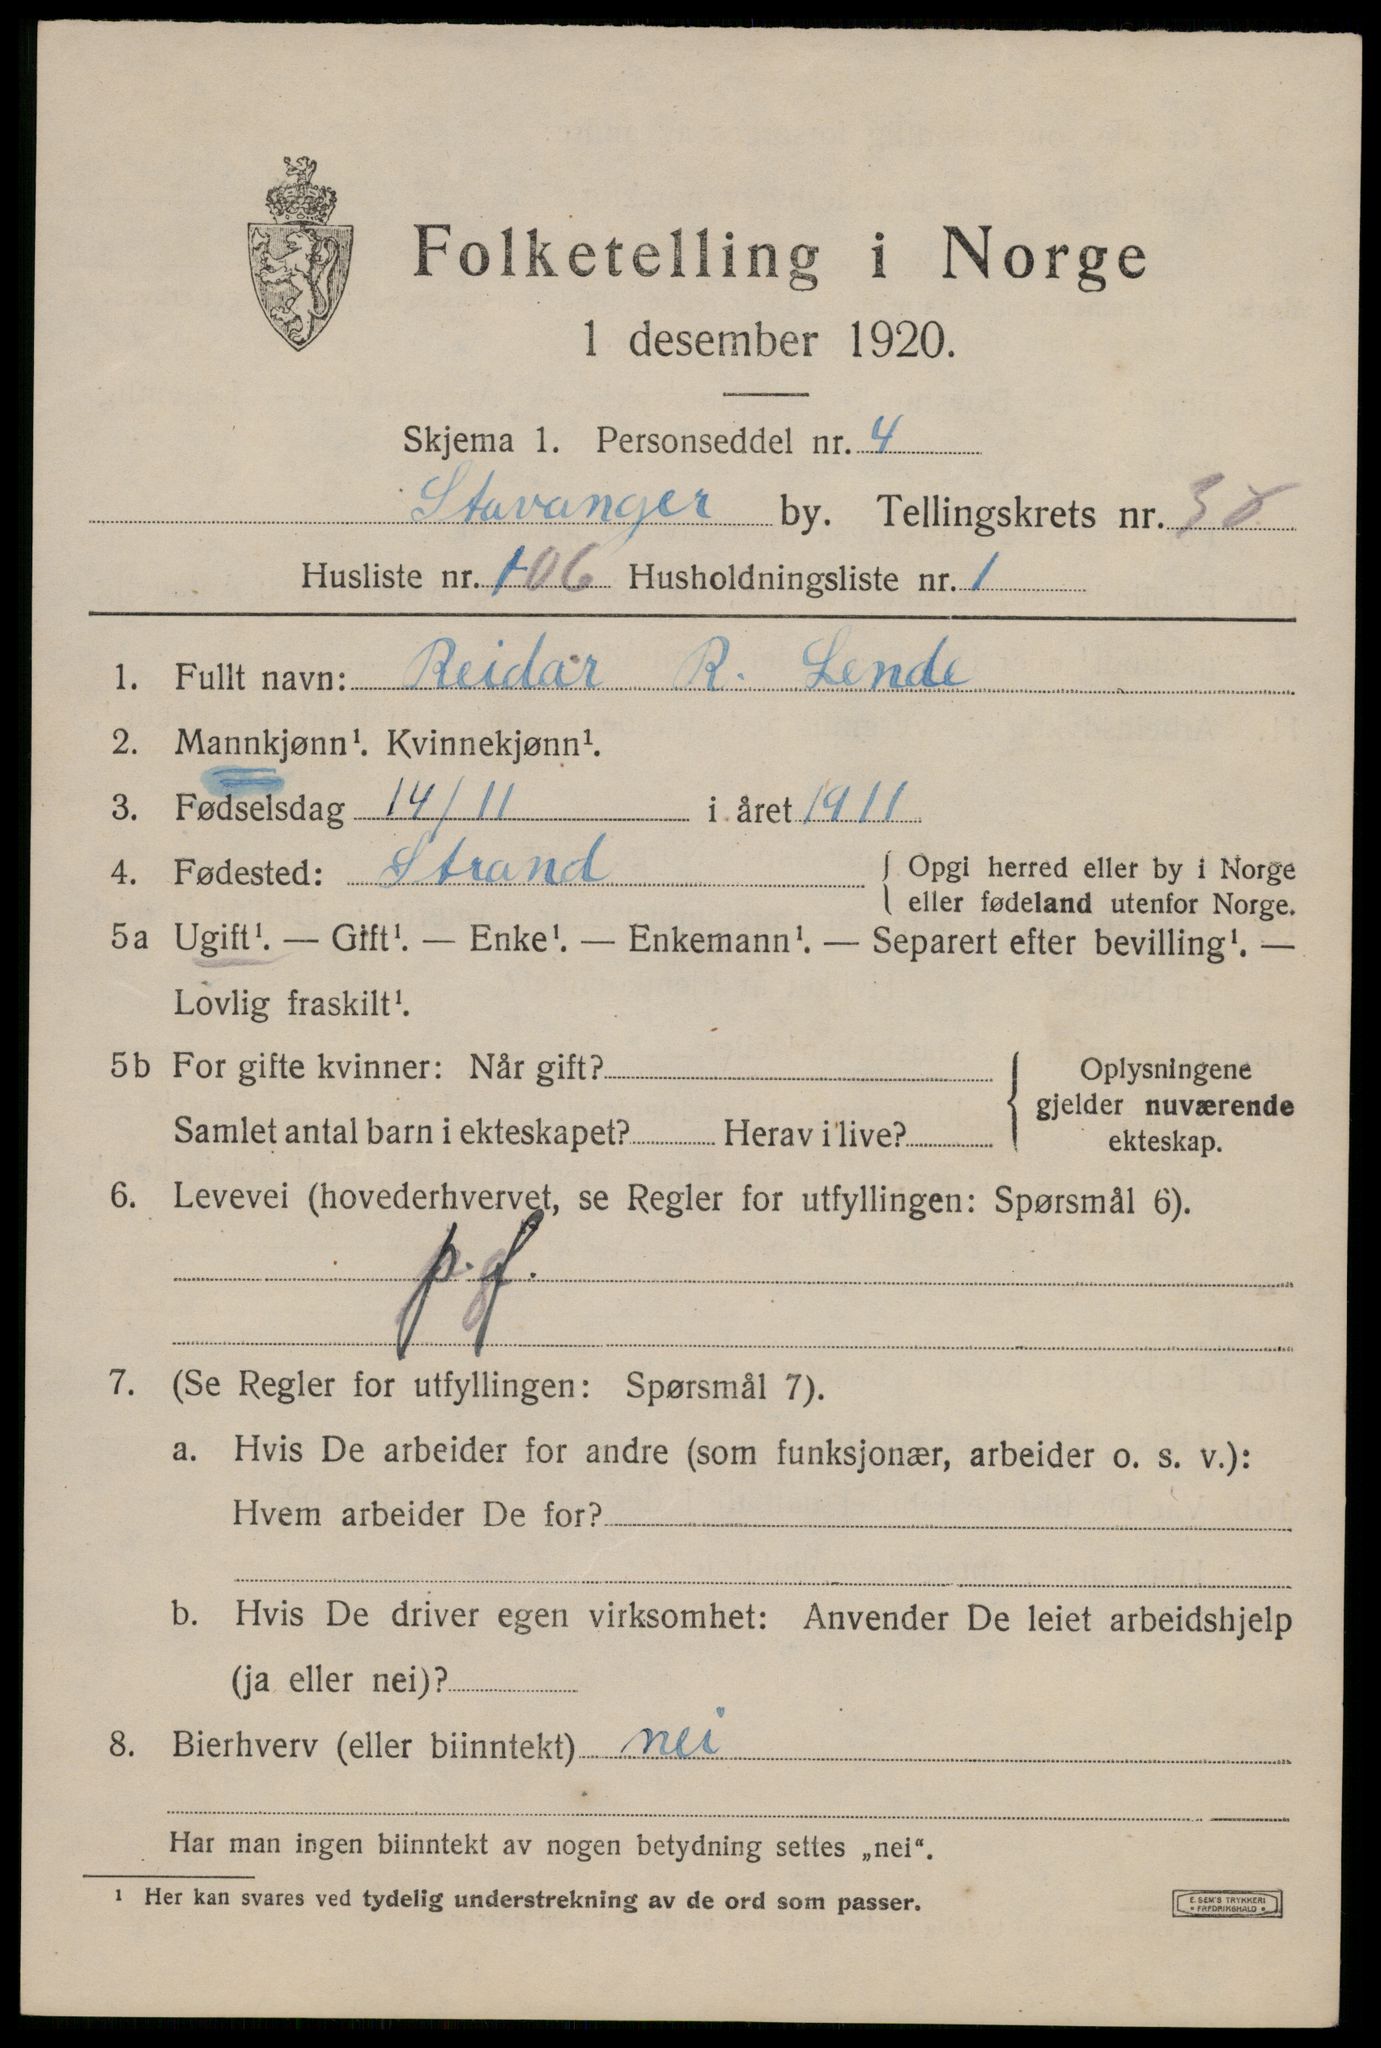 Folketelling i Norge
1 desember 1920.
Skjema 1. Personseddel nr. 4
Stavanger by. Tellingskrets nr.
Husliste nr. 106 Husholdningsliste nr. 1
1. Fullt navn: Reidar R. Lende
2. Mannkjønn¹. Kvinnekjønn¹.
3. Fødselsdag 14/11 i året 1911
4. Fødested: Strand { Opgi herred eller by i Norge
eller fødeland utenfor Norge.
5a Ugift¹. — Gift¹. — Enke¹. — Enkemann¹. — Separert efter bevilling¹. —
Lovlig fraskilt¹.
5b For gifte kvinner: Når gift? { Oplysningene
gjelder nuværende
Samlet antal barn i ekteskapet? Herav i live? ekteskap.
6. Levevei (hovederhvervet, se Regler for utfyllingen: Spørsmål 6).
p.f.
7. (Se Regler for utfyllingen: Spørsmål 7).
a. Hvis De arbeider for andre (som funksjonær, arbeider o. s. v.):
Hvem arbeider De for?
b. Hvis De driver egen virksomhet: Anvender De leiet arbeidshjelp
(ja eller nei)?
8. Bierhverv (eller biinntekt) nei
Har man ingen biinntekt av nogen betydning settes „nei“.
¹ Her kan svares ved tydelig understrekning av de ord som passer.
E. SEM'S TRYKKERI
• FREDRIKSHALD •